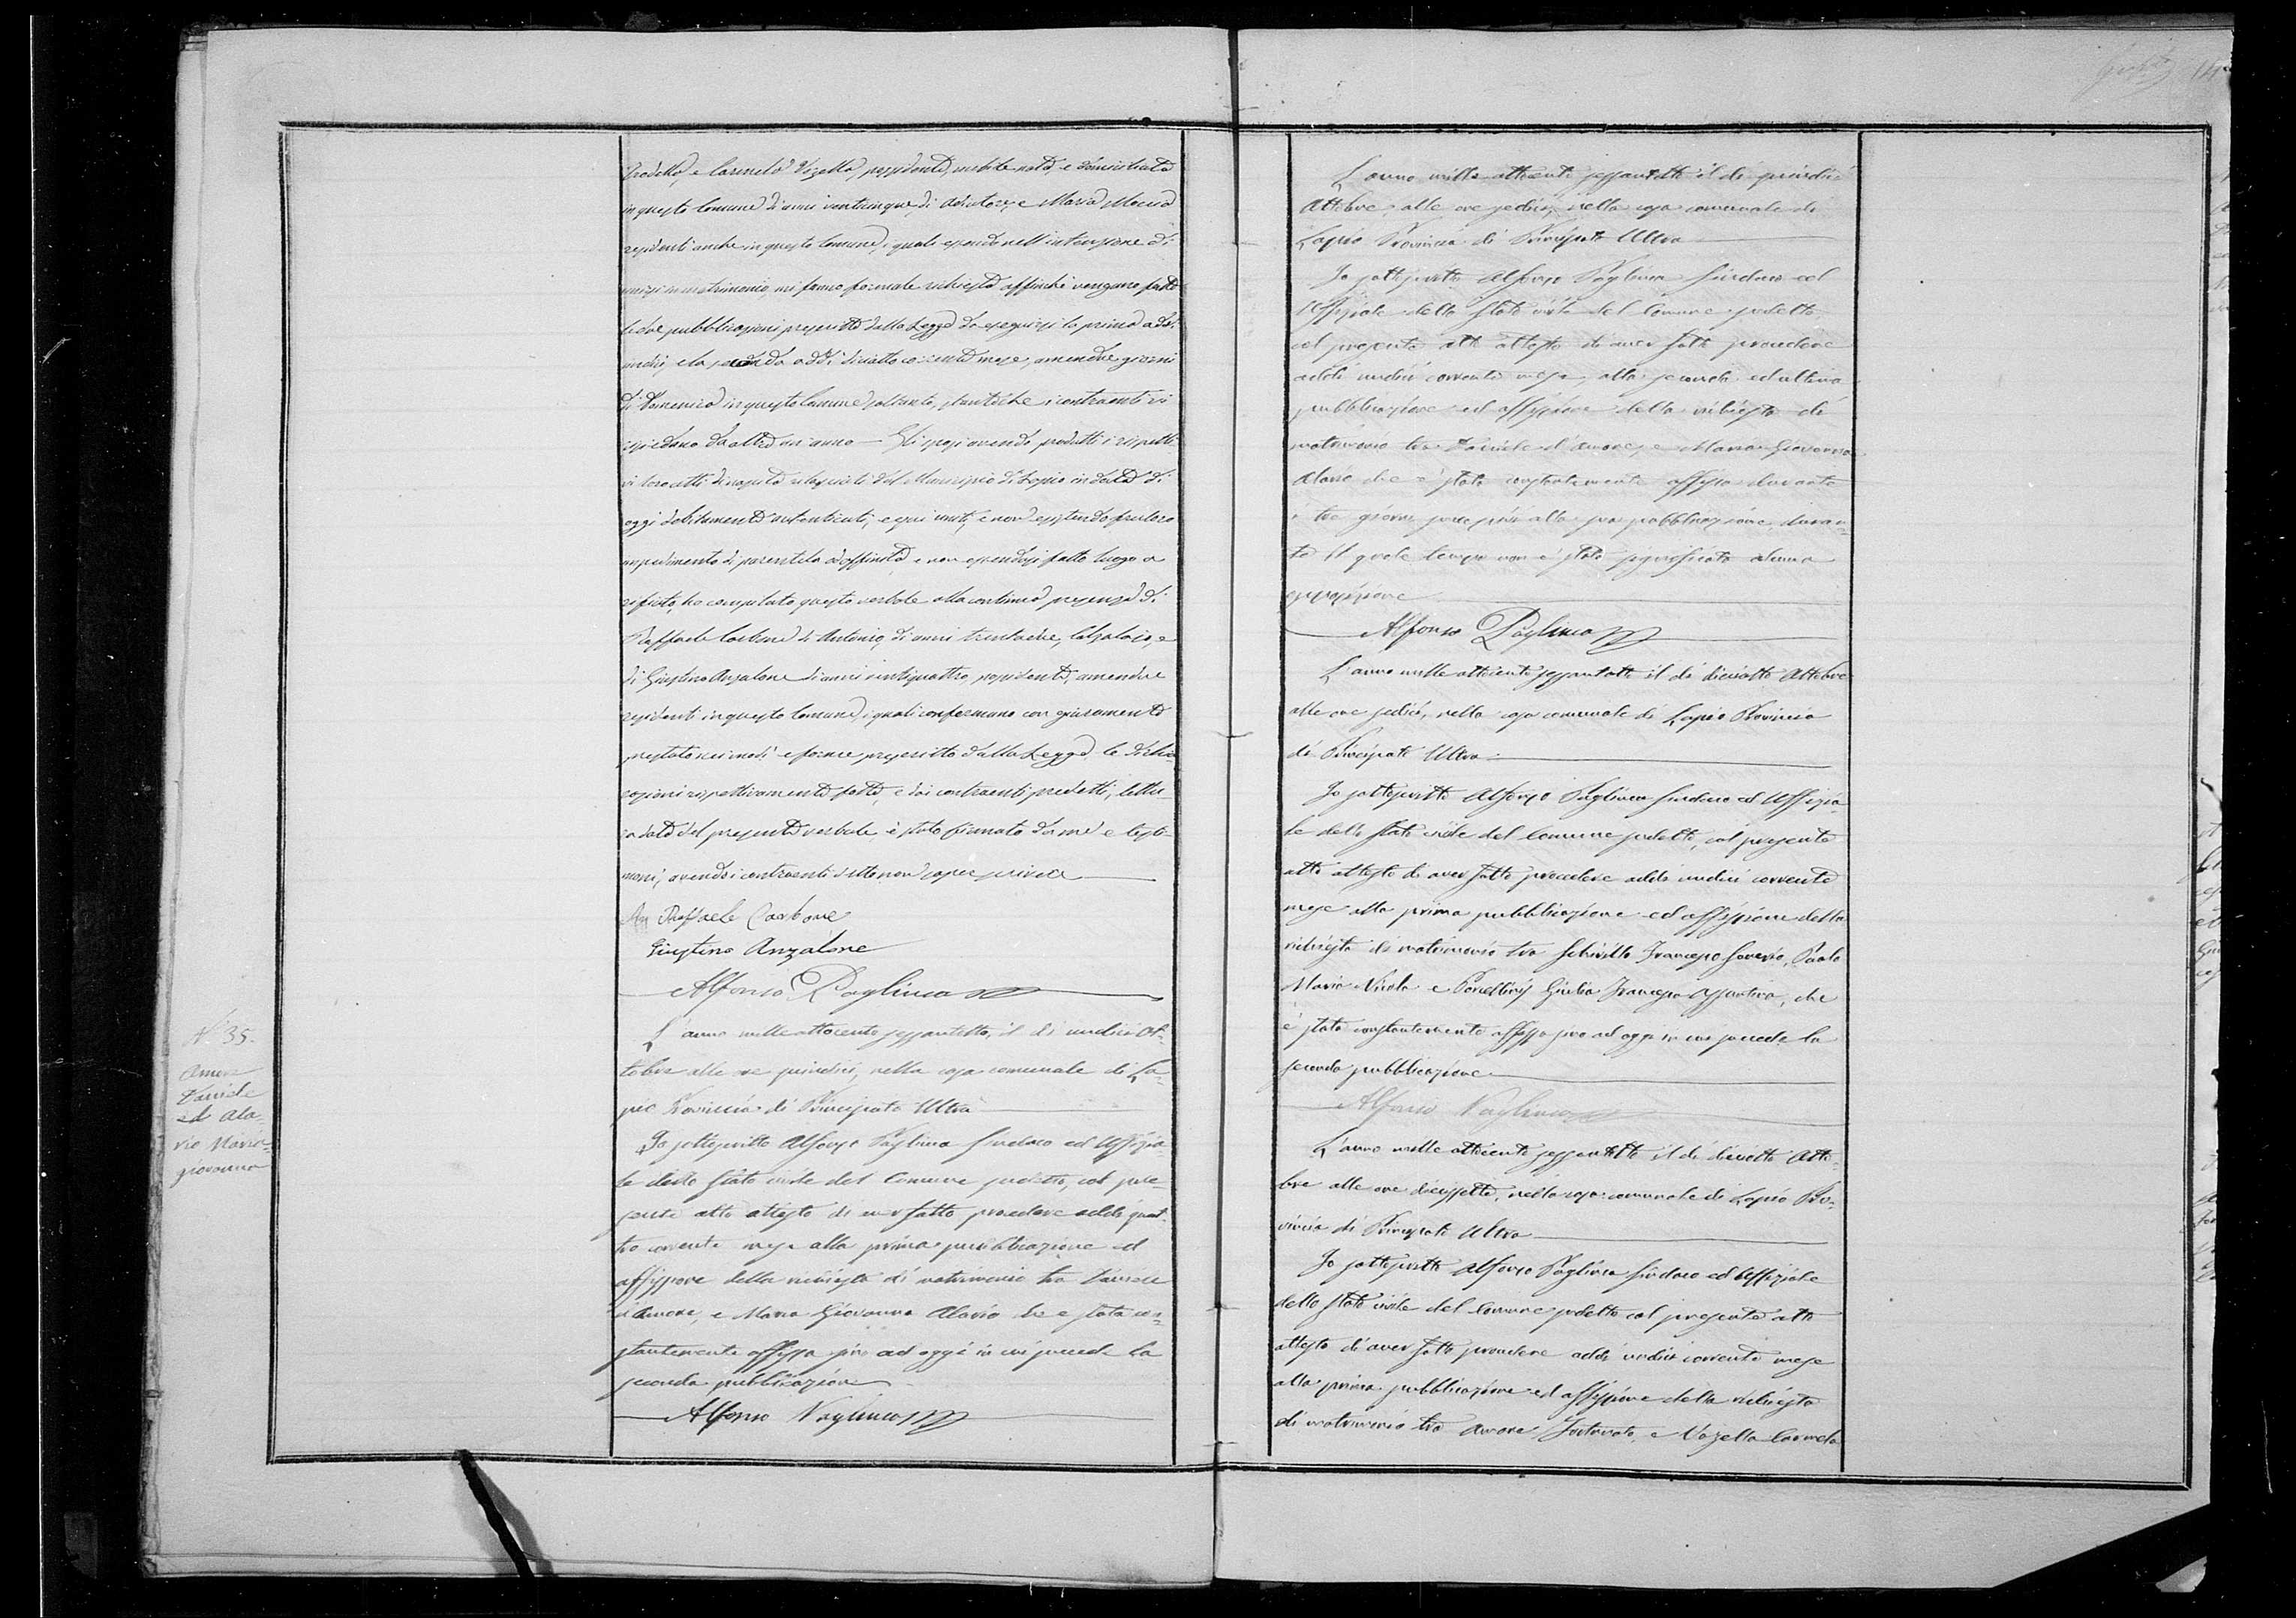 predetto, e Carmela Vozella, possidente, nubile nata, e domiciliata
in questo Comune di anni venticinque, di Salvatore, e Maria
residenti anche in questo Comune, i quali essendo nell'intenzione di
unirsi in matrimonio, mi fanno formale richiesta affinché vengano fatte
le due pubblicazioni prescritte dalla Legge da eseguirsi la prima addì
undici, e la seconda addì diciotto corrente mese, amendue giorni
di Domenica in questo Comune soltanto, stanteché i contraenti vi
risiedono da oltre un anno — Gli sposi avendo prodotti i rispetti-
vi loro atti di nascita rilasciati dal Municipio di Lapio in data di
oggi debitamente autenticati, e qui uniti, e non esistendo fra loro
impedimento di parentela od affinità, e non essendosi fatto luogo a
rifiuto, ho compilato questo verbale alla continua presenza di
Raffaele Carbone di Antonio, di anni trentadue, Calzolaio, e
di Giustino Anzalone di anni ventiquattro, possidente, amendue
residenti in questo Comune, i quali confermano con giuramento
prestato nei modi e forme prescritto dalla Legge le dichia-
razioni rispettivamente fatte, e dai contraenti predetti, lettu-
ra data del presente verbale, è stato firmato da me e testi-
moni, avendo i contraenti detto non saper scrivere
Raffaele Carbone
Giustino Anzalone
Alfonso Pagliuca
N.° 35.
Amore
Daniele
ed Ala-
rio Maria-
giovanna
L'anno mille ottocento sessantotto, il dì undici Ot-
tobre alle ore quindici, nella casa comunale di La-
pio Provincia di Principato Ultra
Io sottoscritto Alfonso Pagliuca Sindaco ed Uffizia-
le dello Stato civile del Comune sudetto, col pre-
sente atto attesto di aver fatto procedere addì quat-
tro corrente mese alla prima pubblicazione ed
affissione della richiesta di matrimonio tra Daniele
d'Amore, e Maria Giovanna Alario che è stata co-
stantemente affissa sino ad oggi in cui succede la
seconda pubblicazione
Alfonso Pagliuca
L'anno mille ottocento sessantotto il dì quindici
Ottobre, alle ore sedici, nella casa comunale di
Lapio Provincia di Principato Ultra
Io sottoscritto Alfonso Pagliuca Sindaco ed
Uffiziale dello Stato civile del Comune sudetto
col presente atto attesto di aver fatto procedere
addì undici corrente mese, alla seconda ed ultima
pubblicazione ed affissione della richiesta di
matrimonio tra Daniele d'Amore, e Maria Giovanna
Alario che è stata costantemente affissa durante
i tre giorni successivi alla sua pubblicazione, duran-
te il quale tempo non è stata significata alcuna
opposizione
Alfonso Pagliuca
L'anno mille ottocento sessantotto il dì diciotto Ottobre
alle ore sedici, nella casa comunale di Lapio Provincia
di Principato Ultra
Io sottoscritto Alfonso Pagliuca Sindaco ed Uffizia-
le dello Stato civile del Comune sudetto, col presente
atto attesto di aver fatto procedere addì undici corrente
mese alla prima pubblicazione ed affissione della
richiesta di matrimonio tra Schirillo Francesco Saverio, Paolo
Maria Nicola e Giulia Francesca Assuntina, che
è stata costantemente affissa sino ad oggi in cui succede la
seconda pubblicazione
Alfonso Pagliuca
L'anno mille ottocento sessantotto il dì diciotto Otto-
bre alle ore diciassette, nella casa comunale di Lapio Pro-
vincia di Principato Ultra
Io sottoscritto Alfonso Pagliuca Sindaco ed Uffiziale
dello Stato civile del Comune sudetto col presente atto
attesto di aver fatto procedere addì undici corrente mese
alla prima pubblicazione ed affissione della richiesta
di matrimonio tra Amore Fortunato, e Vozella Carmela